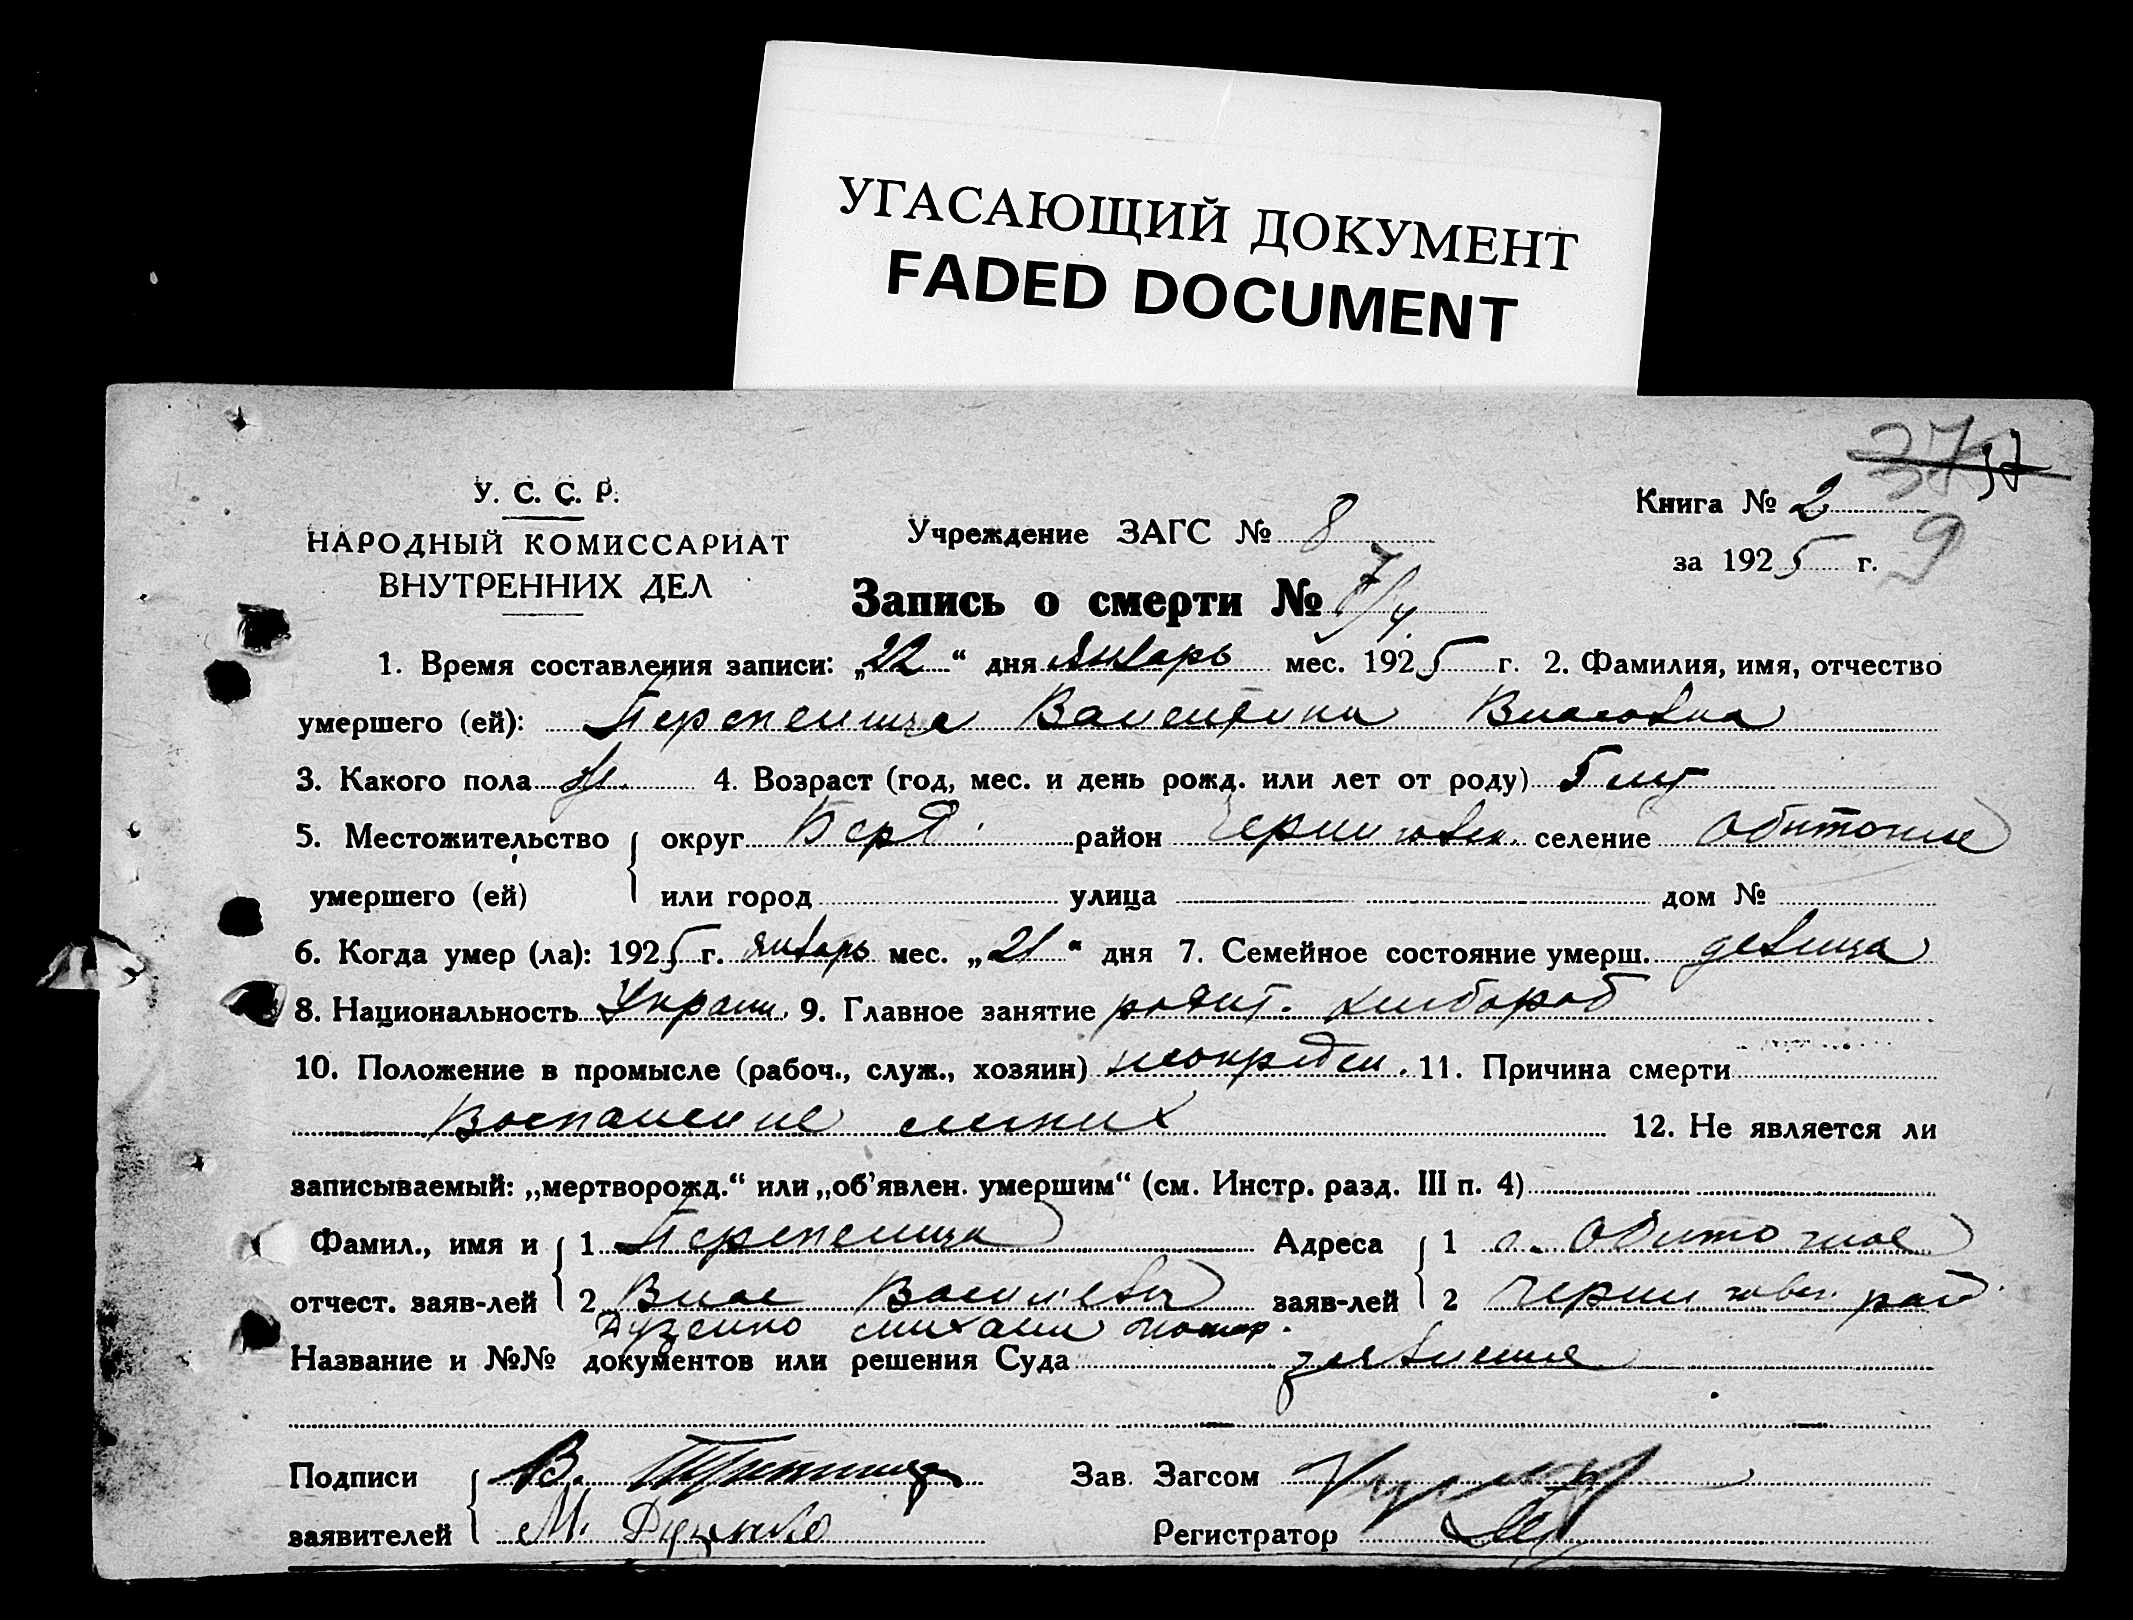 УГАСАЮЩИЙ ДОКУМЕНТ
FADED DOCUMENT
37 37
У. С. С. Р.
НАРОДНЫЙ КОМИССАРИАТ
ВНУТРЕННИХ ДЕЛ
Учреждение ЗАГС № 8
Книга № 2
за 1925 г. 9
Запись о смерти № 7/4
1. Время составления записи: „22“ дня январь мес. 1925 г. 2. Фамилия, имя, отчество
умершего (ей): Перепелица Валентина Власовна
3. Какого пола ж. 4. Возраст (год, мес. и день рожд. или лет от роду) 5 лет
5. Местожительство округ Берд. район Черниговск. селение Обиточне
умершего (ей) или город улица дом №
6. Когда умер (ла): 1925 г. январь мес. „21“ дня 7. Семейное состояние умерш. девица
8. Национальность Украин. 9. Главное занятие родит. хлебороб
10. Положение в промысле (рабоч., служ., хозяин) 11. Причина смерти
Воспаление легких 12. Не является ли
записываемый: „мертворожд.“ или „об’явлен. умершим“ (см. Инстр. разд. III п. 4)
Фамил., имя и 1 Перепелица Адреса 1 с. Обиточное
отчест. заяв-лей 2 Влас Васильевич заяв-лей 2 Черниговск. рай
Дуценко Михаил
Название и №№ документов или решения Суда заявление
Подписи В. Зав. Загсом
заявителей М. Дуценко Регистратор